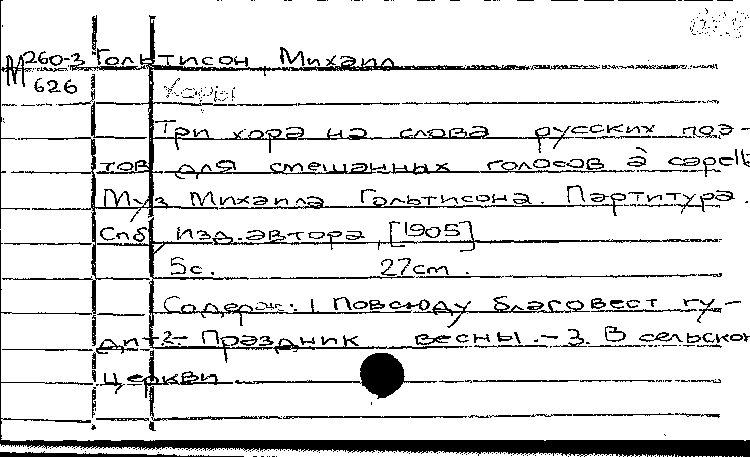 М 260-3 Гольтисон, Михаил
626
Хоры
Три хора на слова русских поэ-
тов для смешанных голосов à capella
Муз Михаила Гольтисона. Партитура.
Спб, Изд. автора, [1905]
5с. 27cm.
Содерж: 1. Повсюду благовест гу-
дит 2- Праздник весны. - 3. В сельской
церкви.